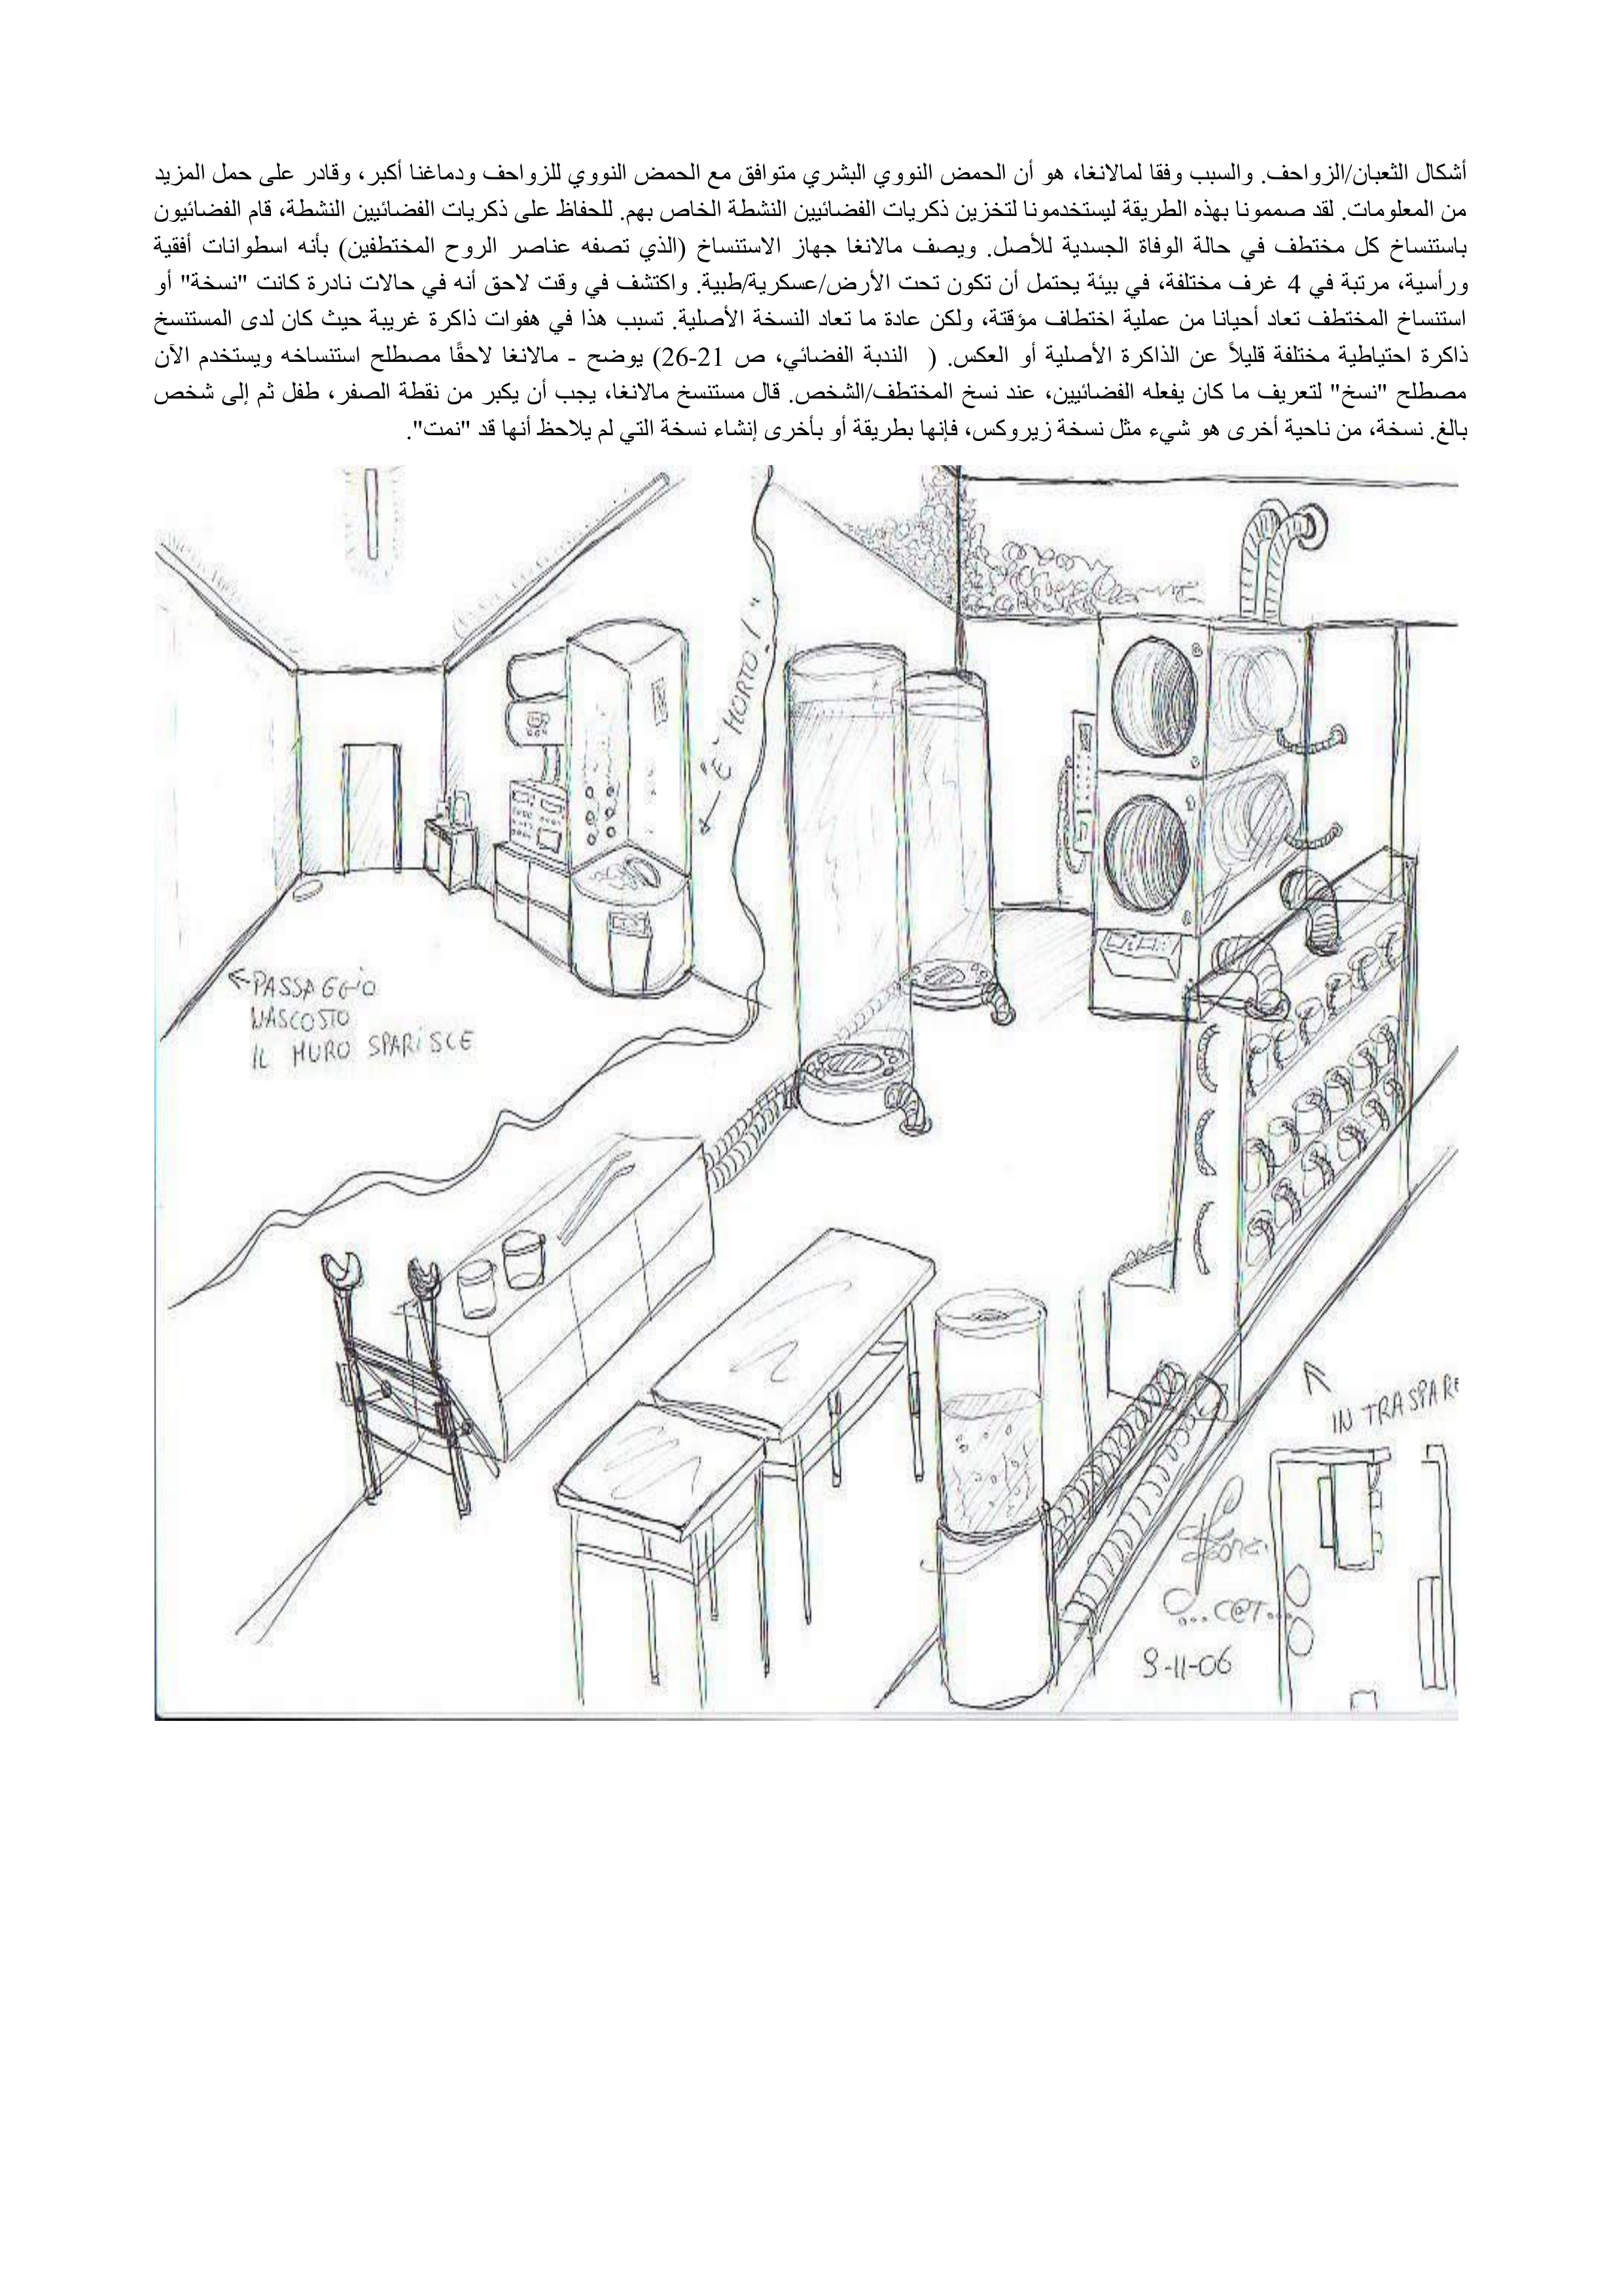 أشكال الثعبان/الزواحف. والسبب وفقا لمالانغا، هو أن الحمض النووي البشري متوافق مع الحمض النووي للزواحف ودماغنا أكبر، وقادر على حمل المزيد
من المعلومات. لقد صممونا بهذه الطريقة ليستخدمونا لتخزين ذكريات الفضائيين النشطة الخاص بهم. للحفاظ على ذكريات الفضائيين النشطة، قام الفضائيون
باستنساخ كل مختطف في حالة الوفاة الجسدية للأصل. ويصف مالانغا جهاز الاستنساخ (الذي تصفه عناصر الروح المختطفين) بأنه اسطوانات أفقية
ورأسية، مرتبة في 4 غرف مختلفة، في بيئة يحتمل أن تكون تحت الأرض/عسكرية/طبية. واكتشف في وقت لاحق أنه في حالات نادرة كانت "نسخة" أو
استنساخ المختطف تعاد أحيانا من عملية اختطاف مؤقتة، ولكن عادة ما تعاد النسخة الأصلية. تسبب هذا في هفوات ذاكرة غريبة حيث كان لدى المستنسخ
ذاكرة احتياطية مختلفة قليلاً عن الذاكرة الأصلية أو العكس. ( الندبة الفضائي، ص 21-26) يوضح - مالانغا لاحقًا مصطلح استنساخه ويستخدم الآن
مصطلح "نسخ" لتعريف ما كان يفعله الفضائيين، عند نسخ المختطف/الشخص. قال مستنسخ مالانغا، يجب أن يكبر من نقطة الصفر، طفل ثم إلى شخص
بالغ. نسخة، من ناحية أخرى هو شيء مثل نسخة زيروكس، فإنها بطريقة أو بأخرى إنشاء نسخة التي لم يلاحظ أنها قد "نمت".
"È MORTO!"
←PASSAGGIO
NASCOSTO
IL MURO SPARISCE
IN TRASPARE
...C@T...
9-11-06